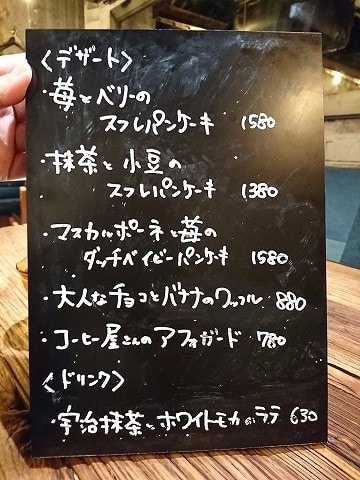 〈デザート〉
・苺とベリーの
スフレパンケーキ 1580
・抹茶と小豆の
スフレパンケーキ 1380
・マスカルポーネと苺の
ダッチベイビーパンケーキ 1580
・大人なチョコとバナナのワッフル 880
・コーヒー屋さんのアフォガード 780
〈ドリンク〉
・宇治抹茶とホワイトモカのラテ 630